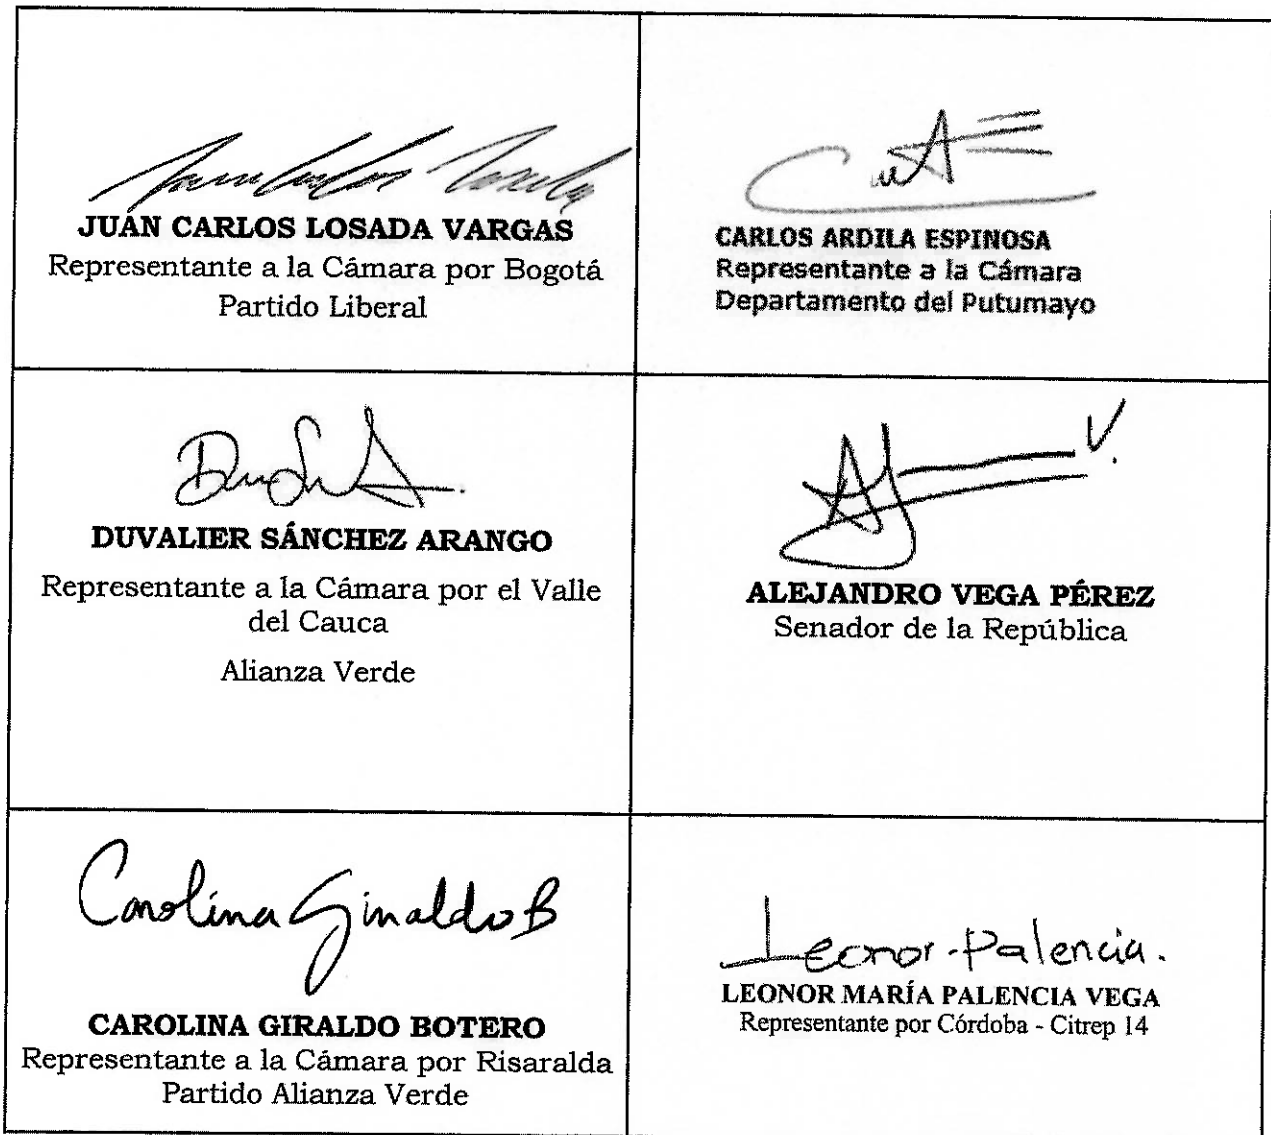 Juan Carlos Losada
JUAN CARLOS LOSADA VARGAS
Representante a la Cámara por Bogotá
Partido Liberal
CARLOS ARDILA ESPINOSA
Representante a la Cámara
Departamento del Putumayo
DUVALIER SÁNCHEZ ARANGO
Representante a la Cámara por el Valle
del Cauca
Alianza Verde
V.
ALEJANDRO VEGA PÉREZ
Senador de la República
Carolina Giraldo B
CAROLINA GIRALDO BOTERO
Representante a la Cámara por Risaralda
Partido Alianza Verde
Leonor Palencia.
LEONOR MARÍA PALENCIA VEGA
Representante por Córdoba - Citrep 14